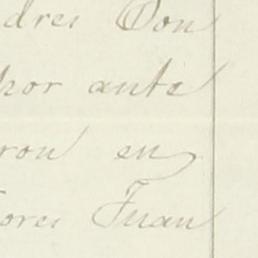 dres Don
por ante
ron en
ores Juan